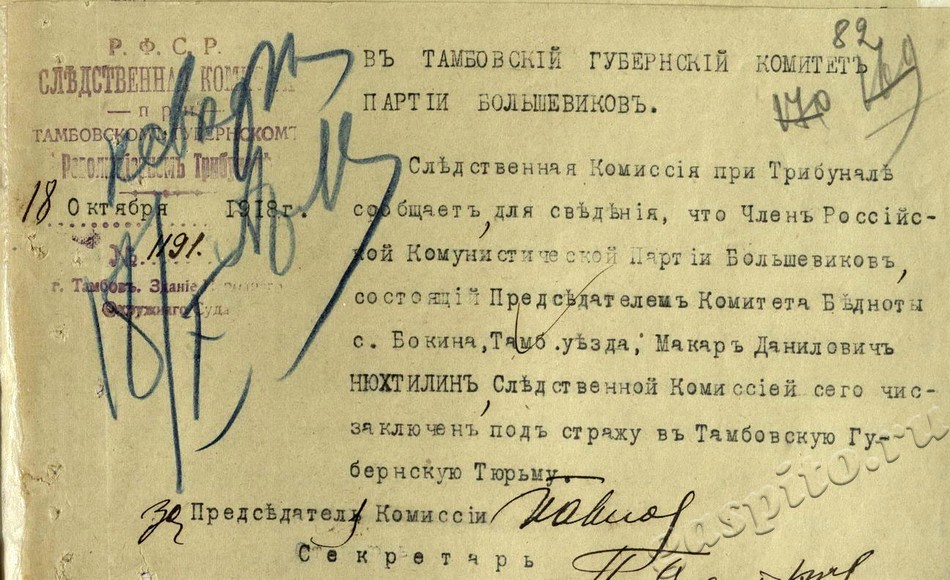 82
170
169
Р. Ф. С. Р.
СЛѢДСТВЕННАЯ КОМИССІЯ
— при —
ТАМБОВСКОМЪ ГУБЕРНСКОМЪ
Трибуналѣ
18 Октября 1918г.
№ 1191.
г. Тамбов. Зданіе
Окружнаго Суда
ВЪ ТАМБОВСКІЙ ГУБЕРНСКІЙ КОМИТЕТЪ
ПАРТІИ БОЛЬШЕВИКОВЪ.
Слѣдственная Комиссія при Трибуналѣ
сообщаетъ, для свѣдѣнія, что Членъ Россійс-
кой Комунистической Партіи Большевиковъ,
состоящій Предсѣдателемъ Комитета Бѣдноты
с. Бокина, Тамб.уѣзда, Макаръ Даниловичъ
НЮХТИЛИНЪ, Слѣдственной Комиссіей сего чис-
заключенъ подъ стражу въ Тамбовскую Гу-
бернскую Тюрьму.
за Предсѣдатель Комиссіи
Секретарь
gaspito.ru